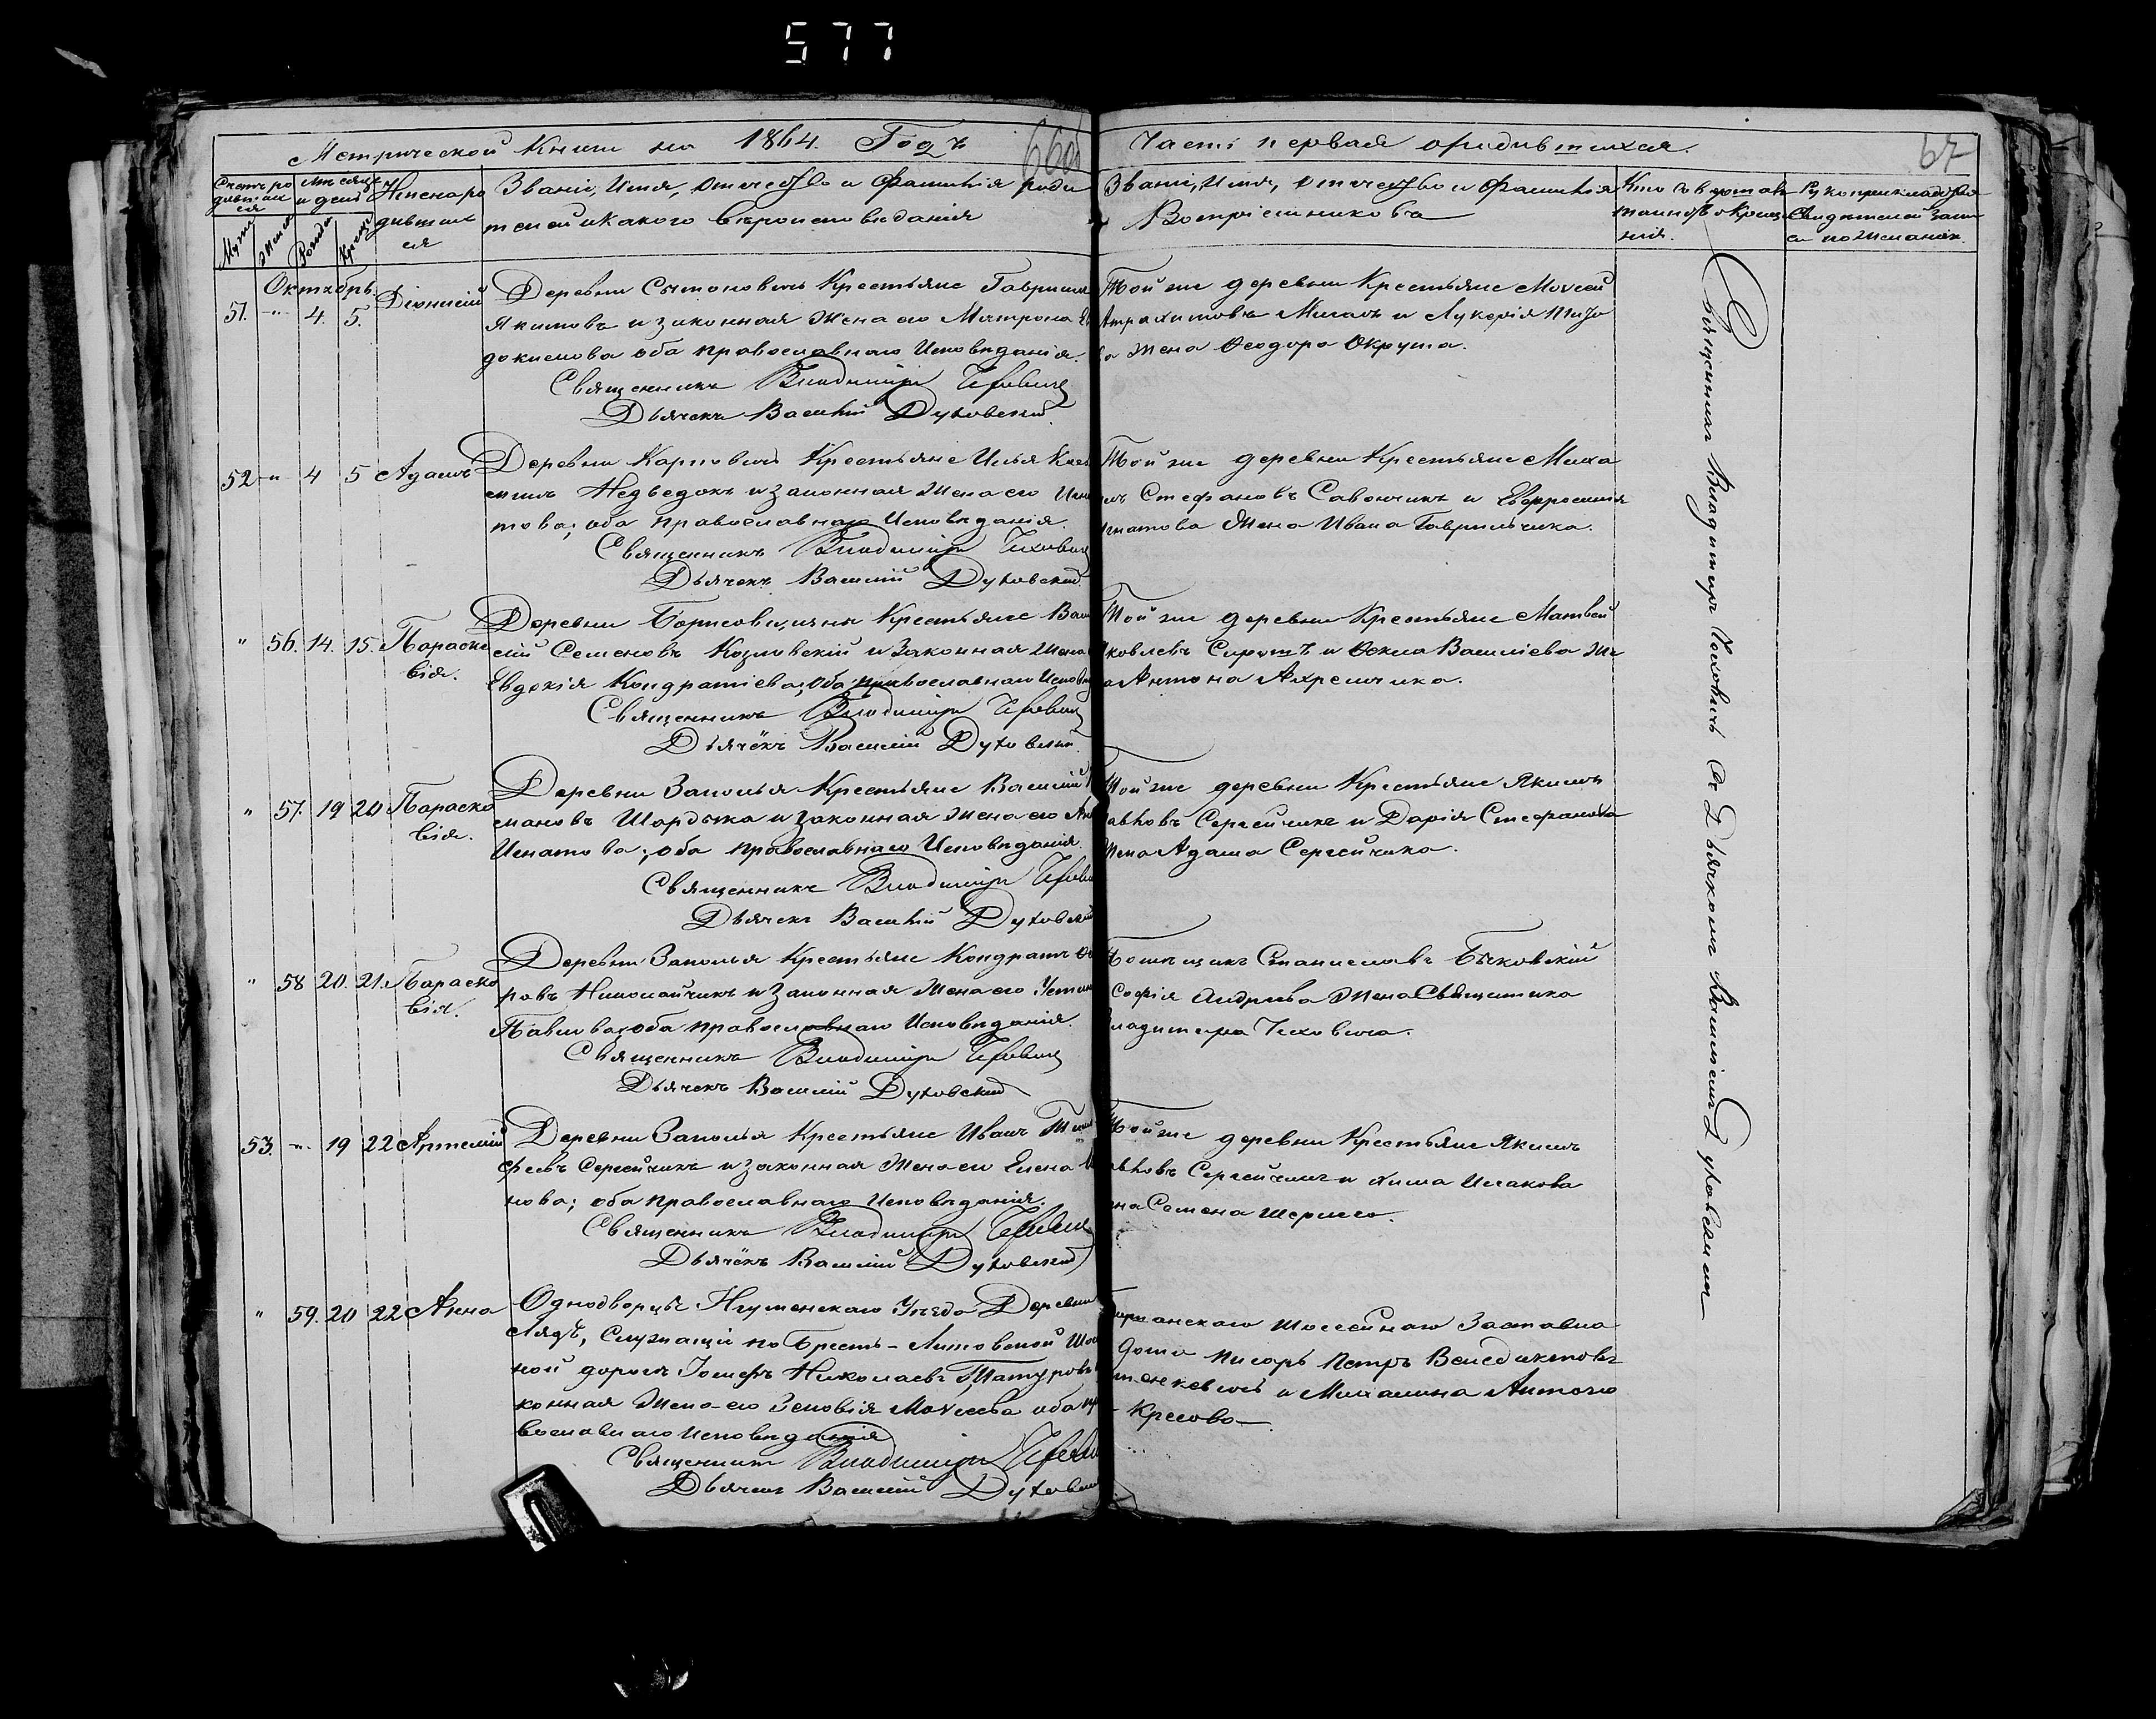 577
Метрической Книги на 1864. Годъ
66об
Часть первая о родившихся.
67
Счетъ ро
дивших
ся
Месяцъ
и день
Имена ро
дивших
ся
Званіе, Имя, Отчество и Фамилія роди
телей и какого вѣроисповѣданія
Званіе, Имя, Отчество и Фамилія
Воспріемниковъ
Кто совершалъ
таинство Креще
нія.
Рукоприкладство
Свидѣтелей запи
си по желанію.
Муж
Женс
Рожде
Креще
Октябрь.
51. -"- 4. 5. Діонисій
Деревни Крестьяне Гавріилъ
Якимовъ и законная Жена его Матрона Ев
докимова оба православнаго Исповѣданія.
Священникъ Владиміръ Чеховичъ
Дьячекъ Василій Духовскій.
Той же деревни Крестьяне Моѵсей
и Лукерія
Жена Ѳеодора Окруша.
52 -"- 4 5 Адамъ
Деревни Карповичъ Крестьяне Илья
Медвѣдокъ и законная Жена его
това; оба православнаго Исповѣданія.
Священникъ Владиміръ Чеховичъ
Дьячекъ Василій Духовскій.
Той же деревни Крестьяне Миха
илъ Стефановъ Савончикъ и Евфросинія
гнатова Жена Ивана Гаврильчика.
" 56. 14. 15. Параске
вія.
Деревни Борисовщины Крестьяне Ва
силій Семеновъ Козловскій и Законная Жена
Евдокія Кондратіева; Оба православнаго Исповѣд
Священникъ Владиміръ Чеховичъ
Дьячёкъ Василій Духовскій.
Той же деревни Крестьяне Матвей
Яковлевъ Сиротъ и Ѳекла Василіева Же
на Антона Ахремчика.
" 57. 19 20 Параске
вія.
Деревни Заполья Крестьяне Василій
мановъ Шардыка и законная Жена его
Игнатова; оба православнаго Исповѣданія.
Священникъ Владиміръ Чехови
Дьячекъ Василій Духовскій
Той же деревни Крестьяне Якимъ
авловъ Сергейчикъ и Дарія Стефанова
Жена Адама Сергейчика.
" 58 20. 21. Параске
вія.
Деревни Заполья Крестьяне Кондратъ Ѳе
ровъ Николайчикъ и Законная Жена его Устин
Павлова; оба православнаго Исповѣданія.
Священникъ Владиміръ Чеховичъ
Дьячекъ Василій Духовскій
Помѣщикъ Станиславъ Бычковскій
Софія Андреева Жена Священника
ладиміра Чеховича.
53. -"- 19 22 Артемій
Деревни Заполья Крестьяне Иванъ Тимо
феевъ Сергейчикъ и законная Жена его Елена
нова; оба православнаго Исповѣданія.
Священникъ Владиміръ Чеховичъ
Дьячёкъ Василій Духовскій
Той же деревни Крестьяне Якимъ
авловъ Сергейчикъ и Хима Исакова
ена Семена Шершео.
" 59. 20 22 Анна
Однодворцы Игуменскаго Уѣзда Деревни
Лядъ, Служащій по Брестъ-Литовской Шос
ной дороги Іосифъ Николаевъ Татуровъ
конная Жена его Зеновія Моѵсеева оба пр
вославнаго Исповѣданія
Священникъ Владиміръ Чехови
Дьячекъ Василій Духовскій
шоссейнаго Заставна
Дома писарь Петръ Венедиктовъ
и Михалина Антоно
Кресова
Священникъ Владиміръ Чеховичъ съ Дьячкомъ Василіемъ Духовскимъ